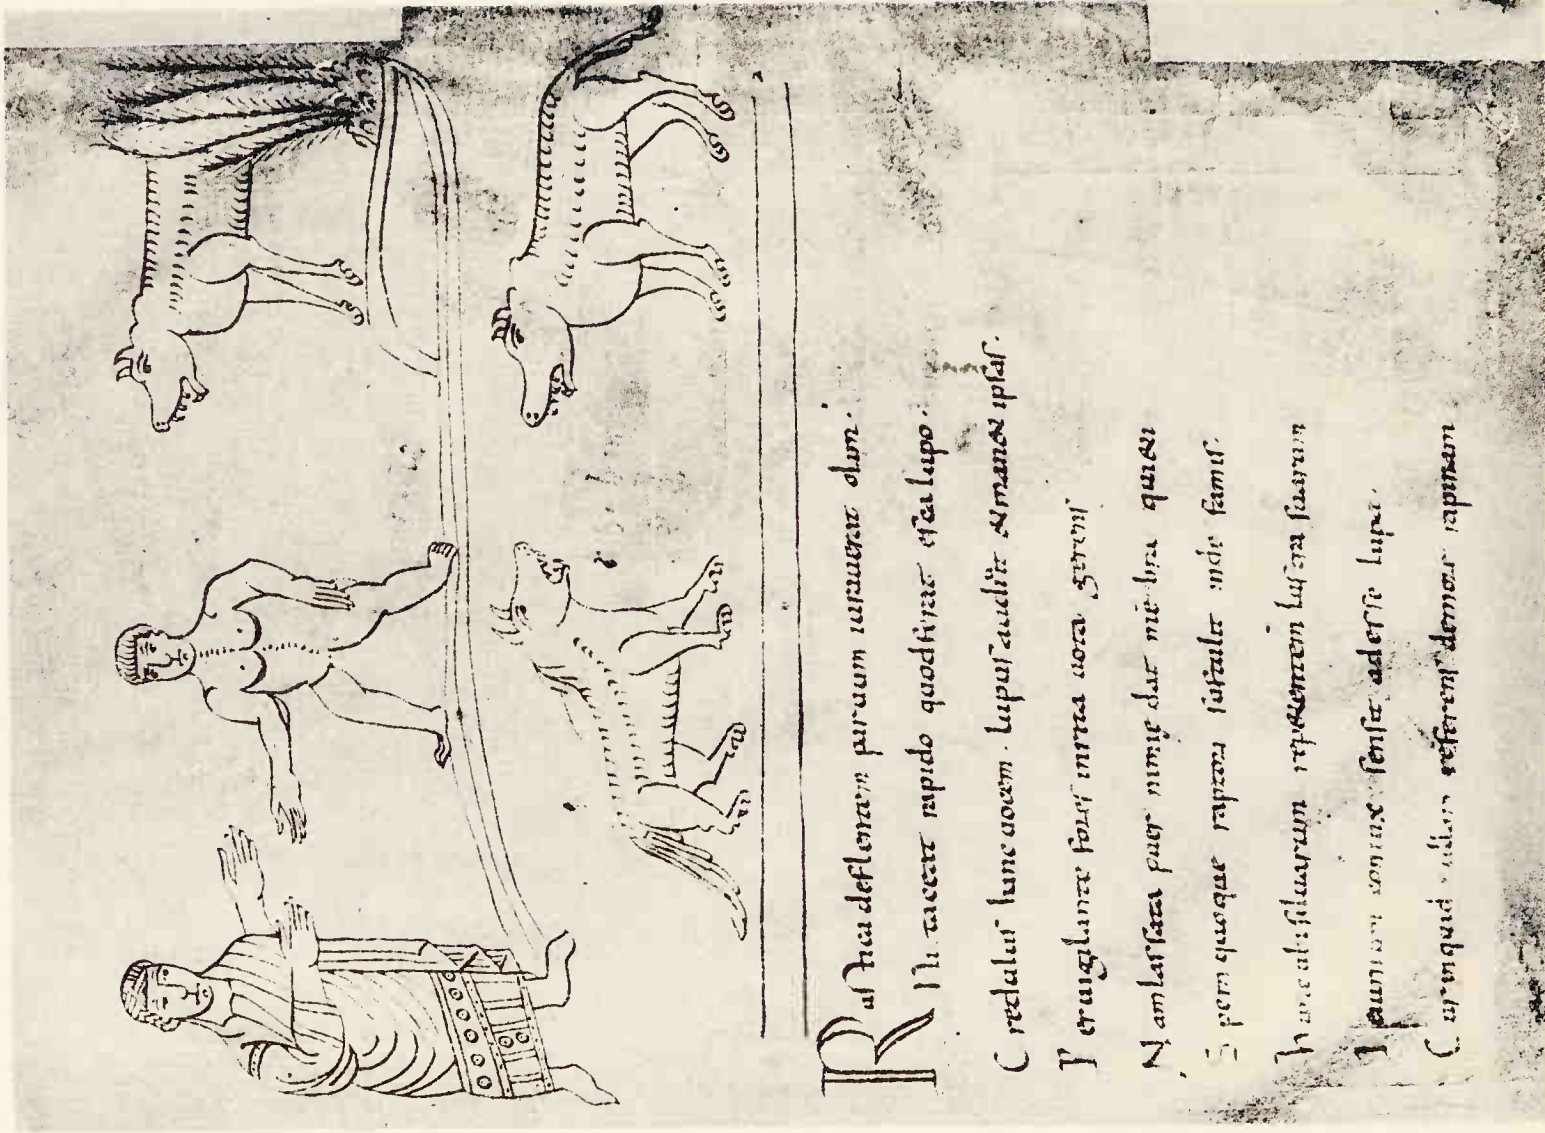 Rustica deflentem paruum iurauerat olim.
Ni taceat rapido quod esca lupo.
Credulus hanc uocem. lupus audiit & man& ipsas.
Peruigilante fores inrita uota gerens
Nam lassata puer nimię dat mēbra qui&i
Spem quoque raptori sustulit inde famis.
hunc ubi siluarum rep&entem lustra suarum
Ieiunum coniunx sensit adesse lupa.
Cur inquid nullam referens demore rapinam